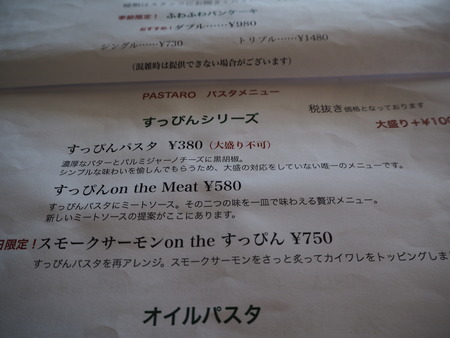 季節限定！ふわふわパンケーキ
おすすめ！ダブル……¥980
シングル……¥730 トリプル……¥1480
(混雑時は提供できない場合がございます)
PASTARO パスタメニュー
税抜き価格となっております
すっぴんシリーズ
大盛り+¥100
すっぴんパスタ ¥380 (大盛り不可)
濃厚なバターとパルミジャーノチーズに黒胡椒。
シンプルな味わいを愉しんでもらうため、大盛の対応をしていない唯一のメニューです。
すっぴんon the Meat ¥580
すっぴんパスタにミートソース。その二つの味を一皿で味わえる贅沢メニュー。
新しいミートソースの提案がここにあります。
日限定！スモークサーモンon the すっぴん ¥750
すっぴんパスタを再アレンジ。スモークサーモンをさっと炙ってカイワレをトッピングしま
オイルパスタ